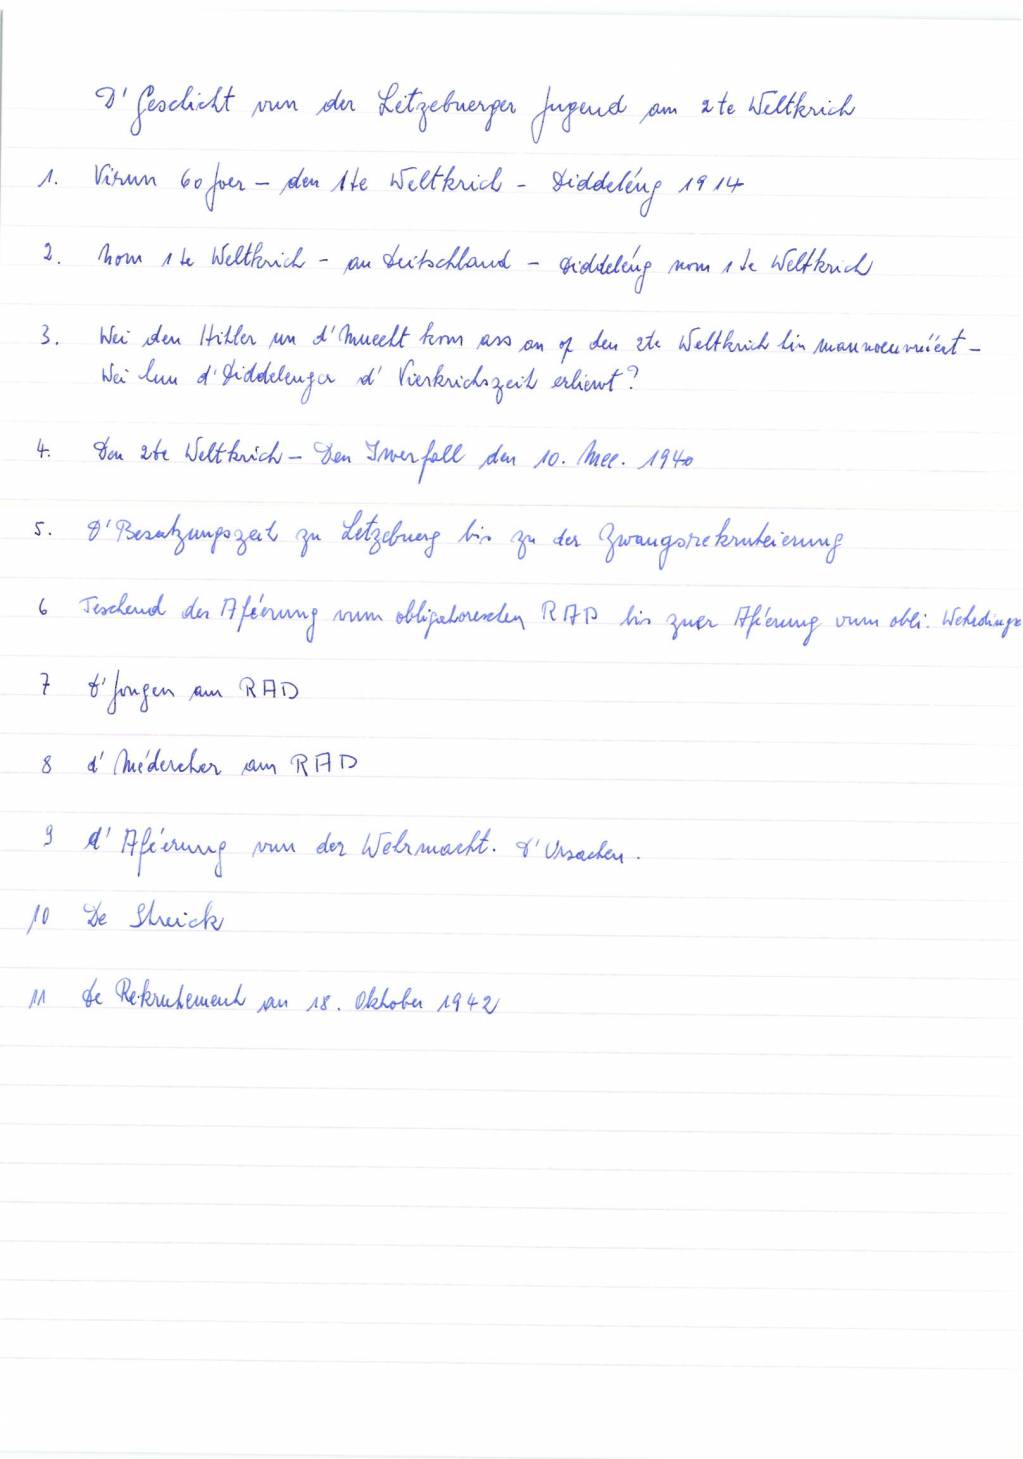 D'Geschicht vun der Lëtzebuerger Jugend am 2te Weltkrich
1. Virun 60 Joer – den 1te Weltkrich – Diddeléng 1914
2. Nom 1te Weltkrich – an Deitschland – Diddeléng nom 1te Weltkrich
3. Wéi den Hitler un d'Muecht kom ass an op den 2te Weltkrich hin mannoeuvréiert –
Wéi hun d'Diddelenger d'Virkrichszeit erliewt?
4. Den 2te Weltkrich – Den Iwerfall den 10. Mee. 1940
5. D'Besatzungszeit zu Letzebuerg bis zu der Zwangsrekrutéierung
6 Teschend der Aféierung vum obligatoreschen RAD bis zuer Aféierung vum obli.
7 D'Jongen am RAD
8 d'Médercher am RAD
9 d'Aféierung vun der Wehrmacht. D'Ursachen.
10 De Streick
11 De Rekrutement am 18. Oktober 1942